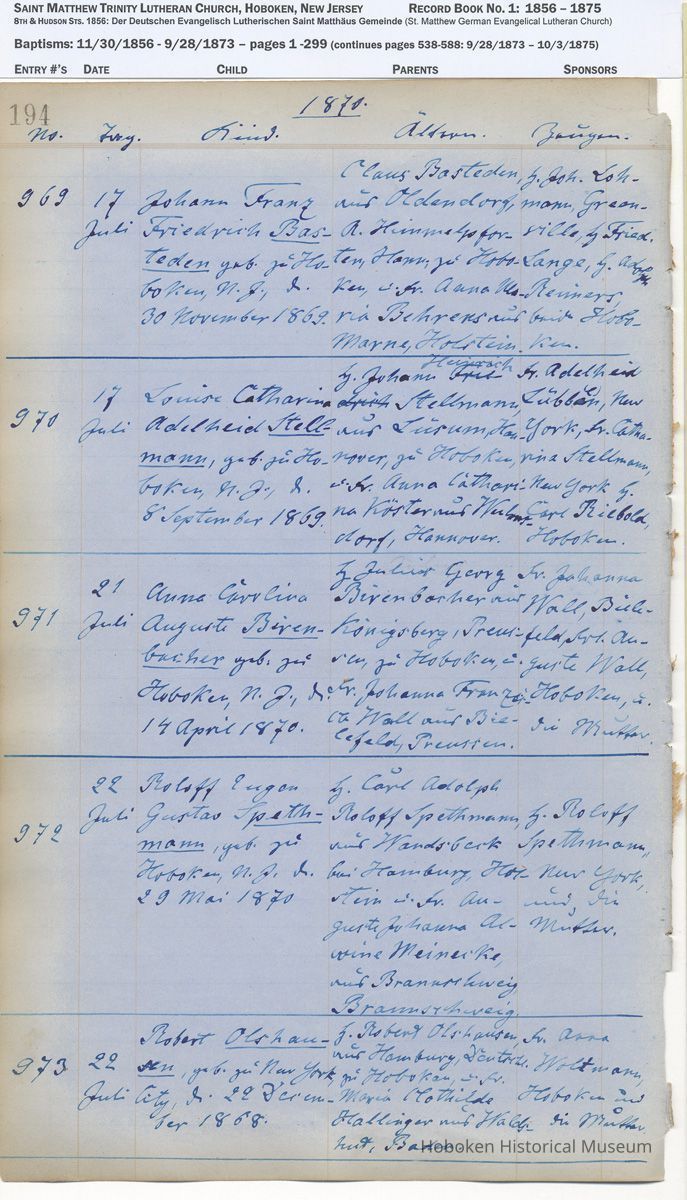 SAINT MATTHEW TRINITY LUTHERAN CHURCH, HOBOKEN, NEW JERSEY RECORD BOOK NO. 1: 1856 – 1875
8TH & HUDSON STS. 1856: Der Deutschen Evangelisch Lutherischen Saint Matthäus Gemeinde (St. Matthew German Evangelical Lutheran Church)
Baptisms: 11/30/1856 - 9/28/1873 – pages 1 -299 (continues pages 538-588: 9/28/1873 – 10/3/1875)
ENTRY #'S DATE CHILD PARENTS SPONSORS
194
1870.
No. Tag. Kind. Ältern. Zeugen.
969
17
Juli
Johann Franz
Friedrich Bas-
teden geb. zu Ho-
boken, N. J., d.
30 November 1869.
Claus Basteden,
aus Oldendorf,
A. Himmelpfor-
ten, Hann., zu Hobo-
ken, u. Fr. Anna Ma-
ria Behrens aus
Marne, Holstein.
H. Joh. Loh-
mann, Green-
ville, H. Fried.
Lange, H. Adolph
Reiners,
beide Hobo-
ken.
970
17
Juli
Louise Catharina
Adelheid Stell-
mann, geb. zu Ho-
boken, N. J., d.
8 September 1869.
Heinrich
H. Johann
Stellmann,
aus Lesum, Han-
nover, zu Hoboken,
u. Fr. Anna Cathari-
na Köster aus
dorf, Hannover.
Fr. Adelheid
Lübben, New
York, Fr. Catha-
rina Stellmann,
New York H.
Carl Riebold,
Hoboken.
971
21
Juli
Anna Carolina
Auguste Biren-
bacher geb. zu
Hoboken, N. J., d.
14 April 1870.
H. Julius Georg
Birenbacher aus
Königsberg, Preus-
sen, zu Hoboken, u.
Fr. Johanna Franzis-
ca Wall aus Bie-
lefeld, Preussen.
Fr. Johanna
Wall, Biele-
feld, Frl. Au-
guste Wall,
Hoboken, u.
die Mutter.
972
22
Juli
Roloff Eugen
Gustav Speth-
mann, geb. zu
Hoboken, N. J. d.
29 Mai 1870
H. Carl Adolph
Roloff Spethmann,
aus Wandsbeck
bei Hamburg Hol-
stein u. Fr. Au-
guste Johanna Al-
wine Meinecke,
aus Braunschweig
Braunschweig.
H. Roloff
Spethmann,
New York,
und die
Mutter.
973
22
Juli
Robert Olshau-
sen, geb. zu New York
City, d. 22 Decem-
ber 1868.
H. Robert Olshausen,
aus Hamburg, Deutsch.
zu Hoboken, u. Fr.
Maria Clothilde
Hallinger aus Walds-
hut, Baden
Fr. Anna
Woltmann,
Hoboken und
die Mutter
Hoboken Historical Museum